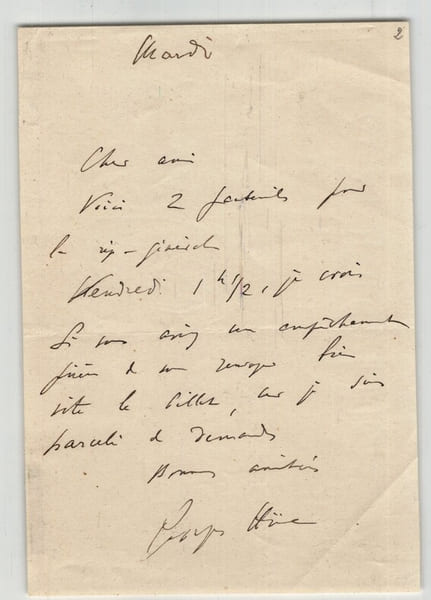 2
Mardi
Cher ami
Voici 2 fauteuils pour
la rép-générale
Vendredi 1 h 1/2, je crois
Si vous aviez un empêchement
prière de me renvoyer bien
vite le billet, car je suis
harcelé de demandes
Bonnes amitiés
Georges Hüe